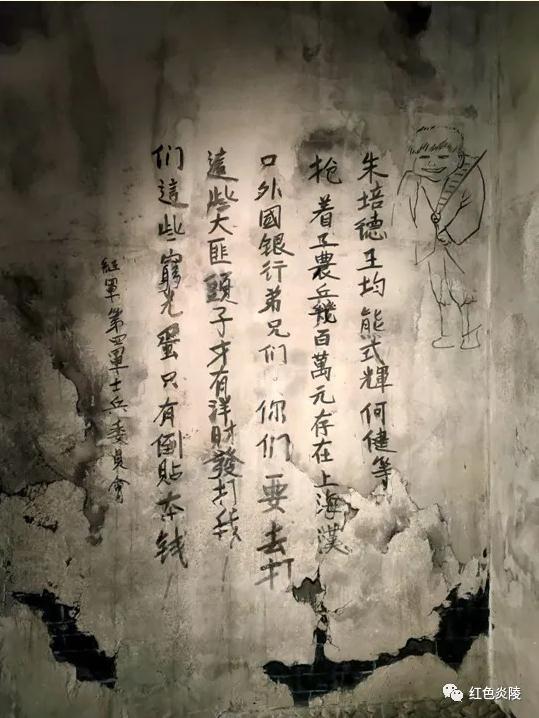 朱培德王均熊式輝何健等
抢着工農兵幾百萬元存在上海漢
口外國銀行弟兄们。你们要去打
這些大匪頭子才有洋財發打我
们這些窮光蛋只有倒貼本钱
紅軍第四軍士兵委員會
红色炎陵